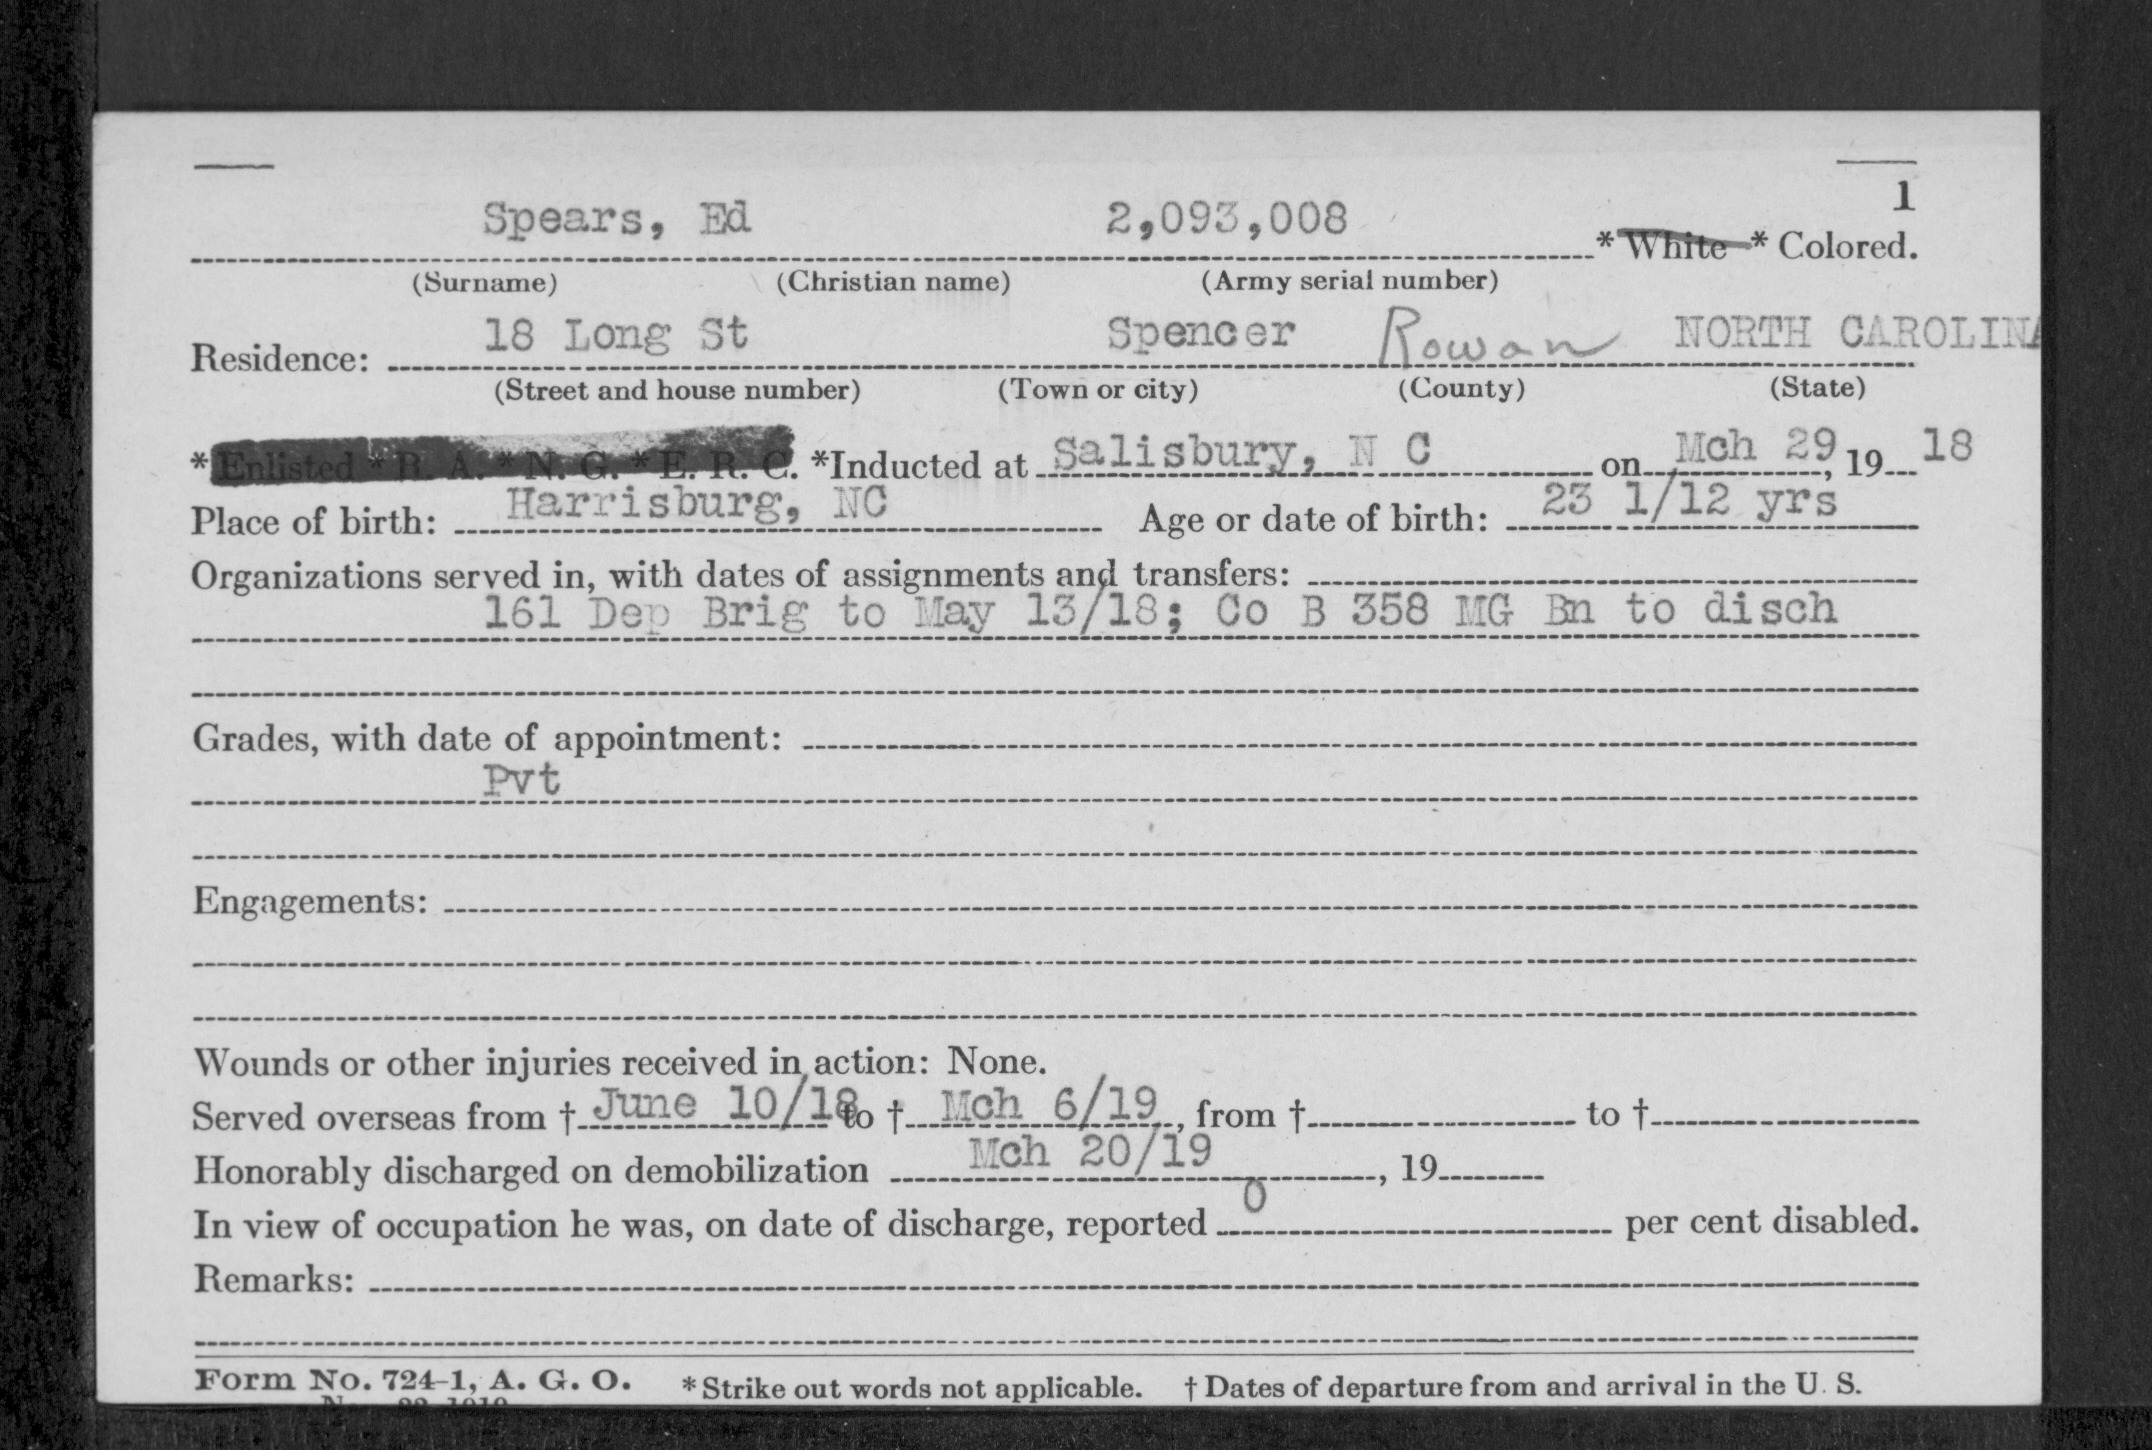 1
Spears, Ed 2,093,008 * White * Colored.
(Surname) (Christian name) (Army serial number)
Residence: 18 Long St Spencer Rowan NORTH CAROLINA
(Street and house number) (Town or city) (County) (State)
* Enlisted * R. A. * N. G. * E. R. C. *Inducted at Salisbury, N C on Mch 29, 19 18
Place of birth: Harrisburg, NC Age or date of birth: 23 1/12 yrs
Organizations served in, with dates of assignments and transfers:
161 Dep Brig to May 13/18; Co B 358 MG Bn to disch
Grades, with date of appointment:
Pvt
Engagements:
Wounds or other injuries received in action: None.
Served overseas from † June 10/18 to † Mch 6/19, from † to †
Honorably discharged on demobilization Mch 20/19, 19
In view of occupation he was, on date of discharge, reported 0 per cent disabled.
Remarks:
Form No. 724-1, A. G. O. * Strike out words not applicable. † Dates of departure from and arrival in the U. S.